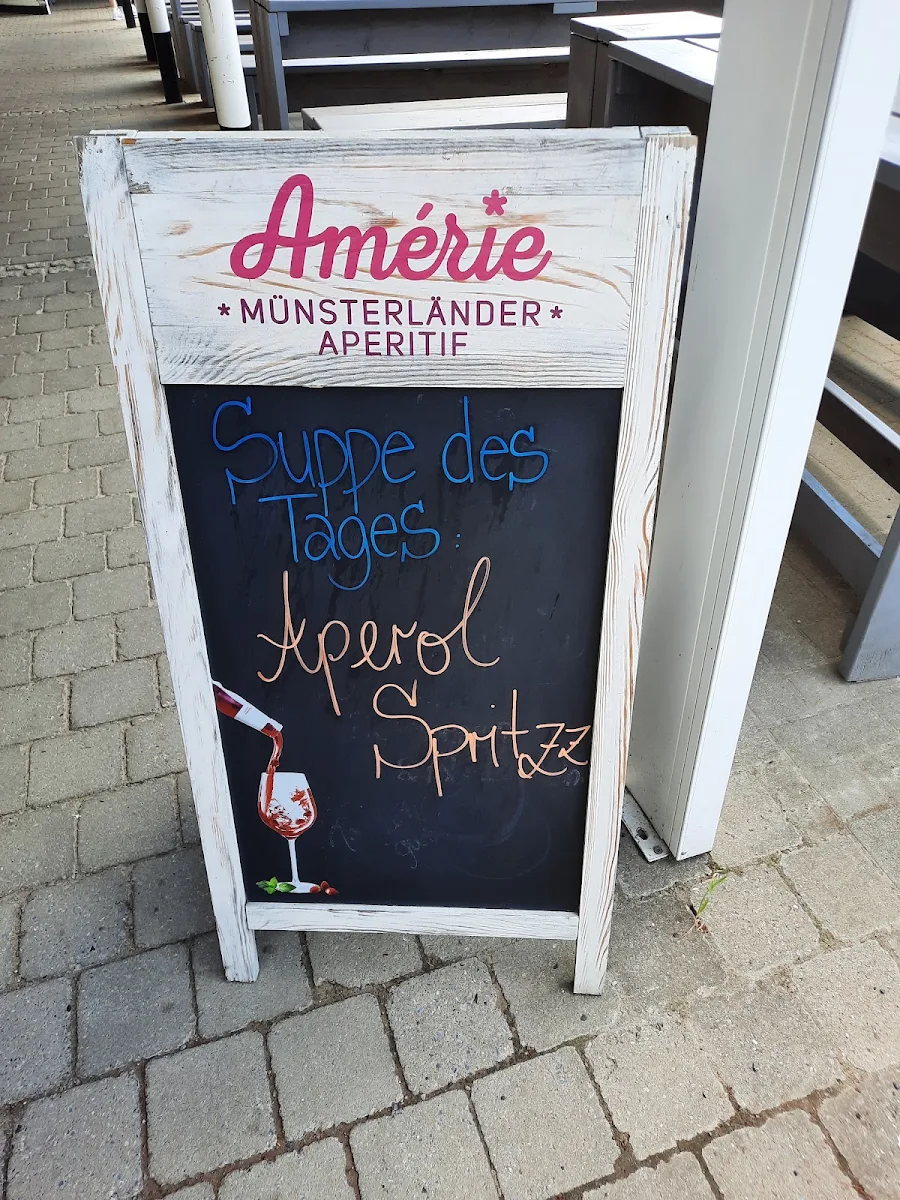 Amérie
*MÜNSTERLÄNDER*
APERITIF
Suppe des
Tages:
Aperol
Spritzz